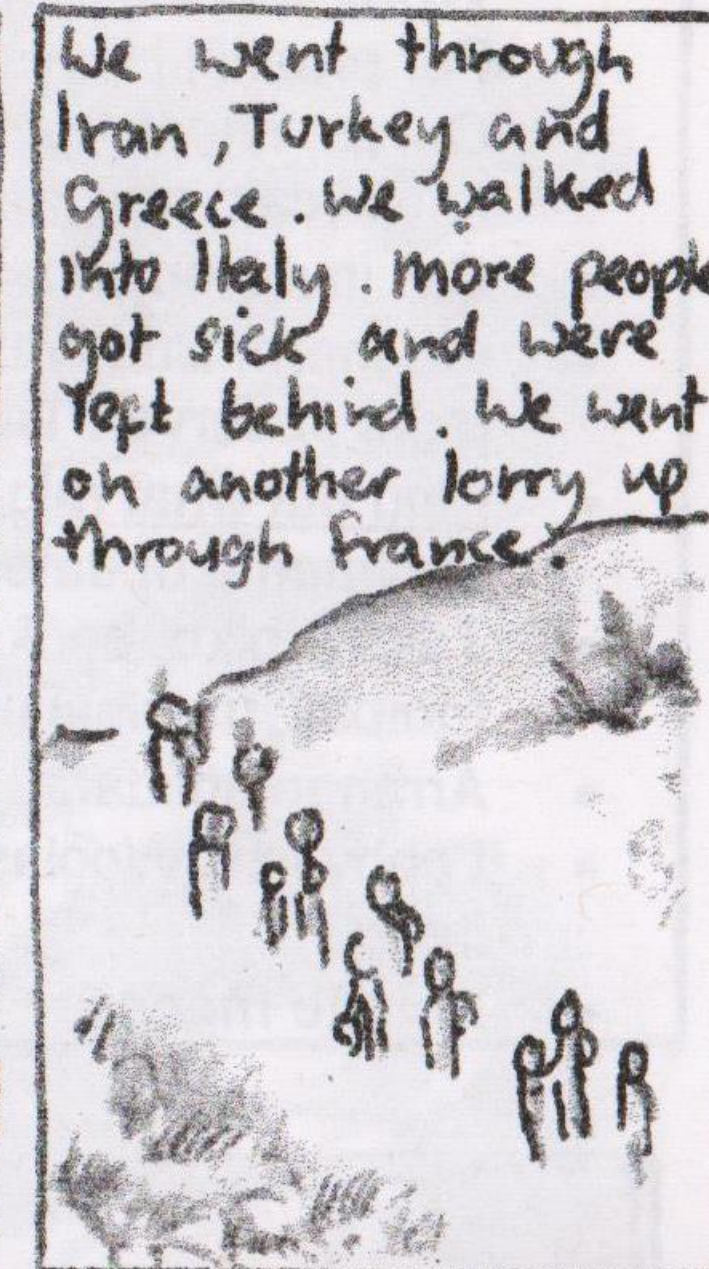 We went through
Iran, Turkey and
Greece. We walked
into Italy. more people
got sick and were
left behind. We went
on another lorry up
through france.